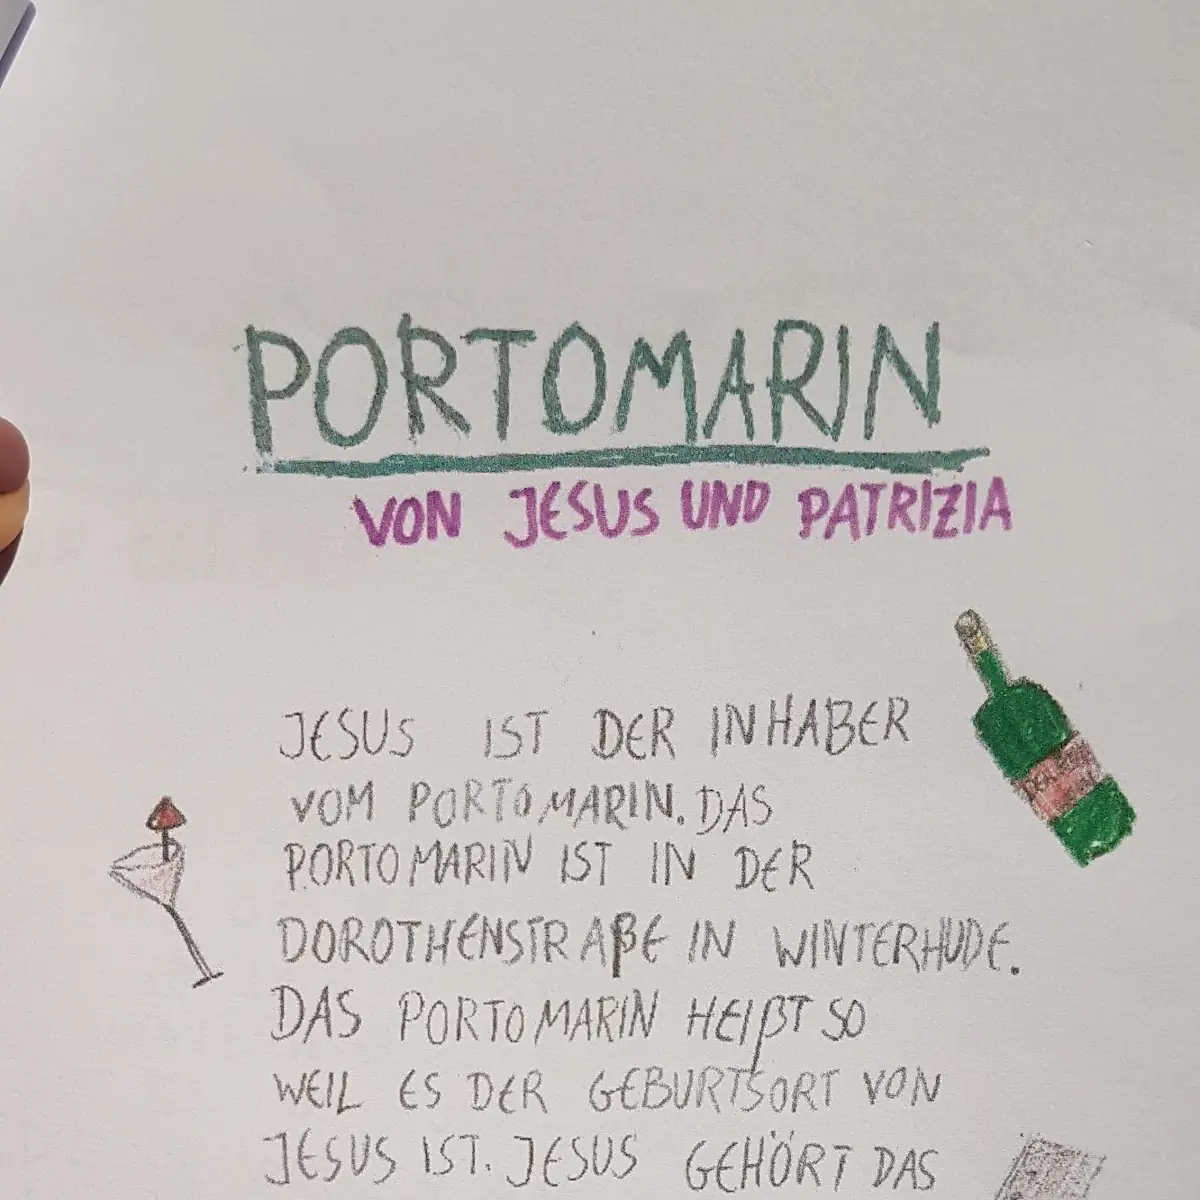 PORTOMARIN
VON JESUS UND PATRIZIA
JESUS IST DER INHABER
VOM PORTOMARIN. DAS
PORTOMARIN IST IN DER
DOROTHENSTRAßE IN WINTERHUDE.
DAS PORTOMARIN HEIßT SO
WEIL ES DER GEBURTSORT VON
JESUS IST. JESUS GEHÖRT DAS